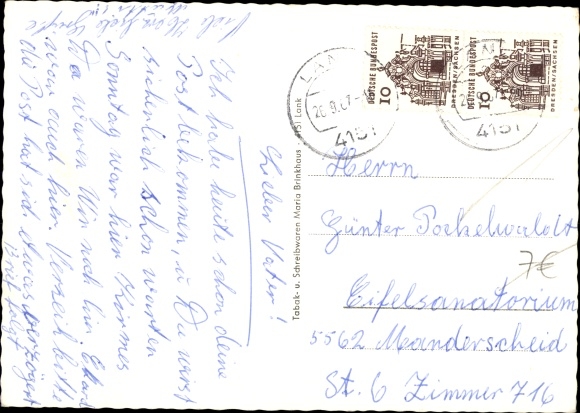 Lieber Vater!
Ich habe heute schon deine
Post bekommen, u. Du wirst
sicherlich schon warten
Sonntag war hier Kermes
Da waren Wir noch hier
war auch hier. Verzeih bitte
die Post hat sich etwas verzögert
Viele
Tabak- u. Schreibwaren Maria Brinkhaus · 4151 Lank
DEUTSCHE BUNDESPOST
10
DRESDEN/SACHSEN
DEUTSCHE BUNDESPOST
10
DRESDEN/SACHSEN
4151
4151
Herrn
Günter Pockelwaldt
Eifelsanatorium
5562 Manderscheid
St. 6 Zimmer 716
7€